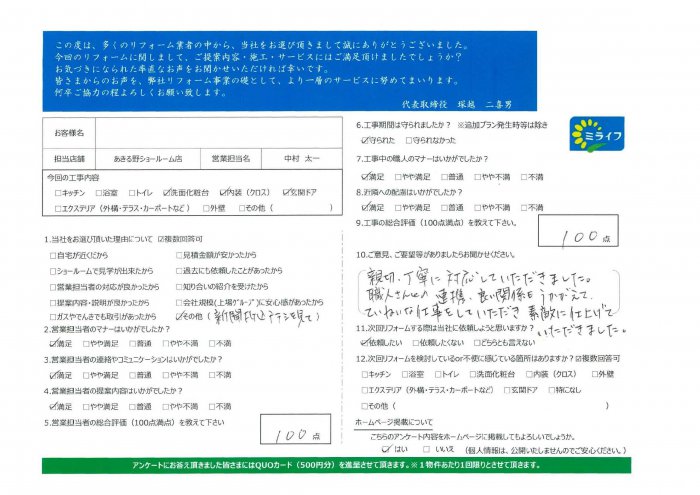 この度は、多くのリフォーム業者の中から、当社をお選び頂きまして誠にありがとうございました。
今回のリフォームに関しまして、ご提案内容・施工・サービスにはご満足頂けましたでしょうか?
お気づきになられた率直なお声をお聞かせいただければ幸いです。
皆さまからのお声を、弊社リフォーム事業の礎として、より一層のサービスに努めてまいります。
何卒ご協力の程よろしくお願い致します。
代表取締役 塚越 二喜男
ミライフ
お客様名
担当店舗 あきる野ショールーム店 営業担当名 中村 太一
今回の工事内容
□キッチン □浴室 □トイレ ☑洗面化粧台 ☑内装(クロス) ☑玄関ドア
□エクステリア(外構・テラス・カーポートなど) □外壁 □その他( )
1.当社をお選び頂いた理由について ☑複数回答可
□自宅が近くだから □見積金額が安かったから
□ショールームで見学が出来たから □過去にも依頼したことがあったから
□営業担当者の対応が良かったから □知り合いの紹介を受けたから
□提案内容・説明が良かったから □会社規模(上場グループ)に安心感があったから
□ガスやでんきでも取引があったから ☑その他(新聞折込チラシを見て)
2.営業担当者のマナーはいかがでしたか?
☑満足 □やや満足 □普通 □やや不満 □不満
3.営業担当者の連絡やコミュニケーションはいかがでしたか?
☑満足 □やや満足 □普通 □やや不満 □不満
4.営業担当者の提案内容はいかがでしたか?
☑満足 □やや満足 □普通 □やや不満 □不満
5.営業担当者の総合評価(100点満点)を教えて下さい
100 点
6.工事期間は守られましたか? ※追加プラン発生時等は除き
☑守られた □守られなかった
7.工事中の職人のマナーはいかがでしたか?
☑満足 □やや満足 □普通 □やや不満 □不満
8.近隣への配慮はいかがでしたか?
☑満足 □やや満足 □普通 □やや不満 □不満
9.工事の総合評価(100点満点)を教えて下さい。
100 点
10.ご意見、ご要望等がありましたらお聞かせください。
親切、丁寧に対応していただきました。
職人さんとの連携、良い関係をうかがえて、
ていねいな仕事をしていただき 素敵に仕上げて
いただきました。
11.次回リフォームする際は当社に依頼しようと思いますか?
☑依頼したい □依頼したくない □どちらとも言えない
12.次回リフォームを検討しているor不便に感じている箇所はありますか?☑複数回答可
□キッチン □浴室 □トイレ □洗面化粧台 □内装(クロス) □外壁
□エクステリア(外構・テラス・カーポートなど) □玄関ドア □特になし
□その他( )
ホームページ掲載について
こちらのアンケート内容をホームページに掲載してもよろしいでしょうか。
☑はい □いいえ (個人情報は、公開いたしませんのでご安心ください。)
アンケートにお答え頂きました皆さまにはQUOカード(500円分)を進呈させて頂きます。※1物件あたり1回限りとさせて頂きます。